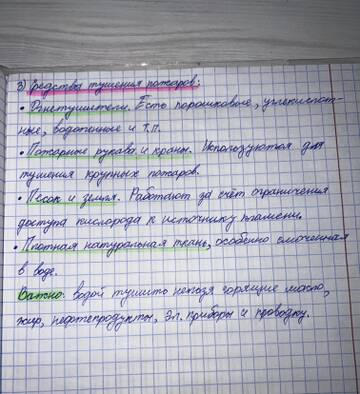 3) Средства тушения пожаров:
• Огнетушители. Есть порошковые, углекислот-
ные, водопенные и т.п.
• Пожарные рукава и краны. Используются для
тушения крупных пожаров.
• Песок и земля. Работают за счёт ограничения
доступа кислорода к источнику пламени.
• Плотная натуральная ткань, особенно смоченная
в воде.
Важно: водой тушить нельзя горящие масло,
жир, нефтепродукты, эл. приборы и проводку.